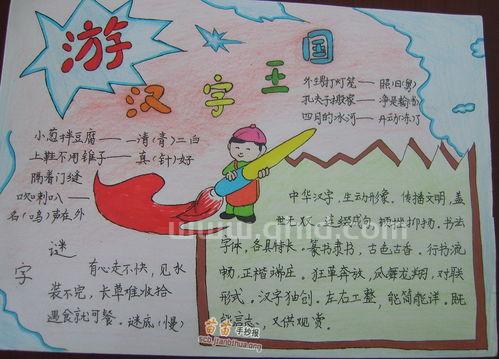 游
汉字王国
外甥打灯笼——照旧(舅)
孔夫子搬家——净是
四月的冰河——开动(冻)了
小葱拌豆腐——清(青)二白
上鞋不用锥子——真(针)好
隔着门缝
吹喇叭——
名(鸣)声在外
字谜
有心走不快，见水
装不完，长草难收拾
遇食就可餐。谜底(慢)
中华汉字，生动形象，传播文明，盖
抑扬，书法
字体，各具特长。篆书隶书，古色古香。行书流
畅，正楷端庄。狂草奔放，
对联
形式，汉字独创。左右工整，能简能详。既
能言志，又供观赏。